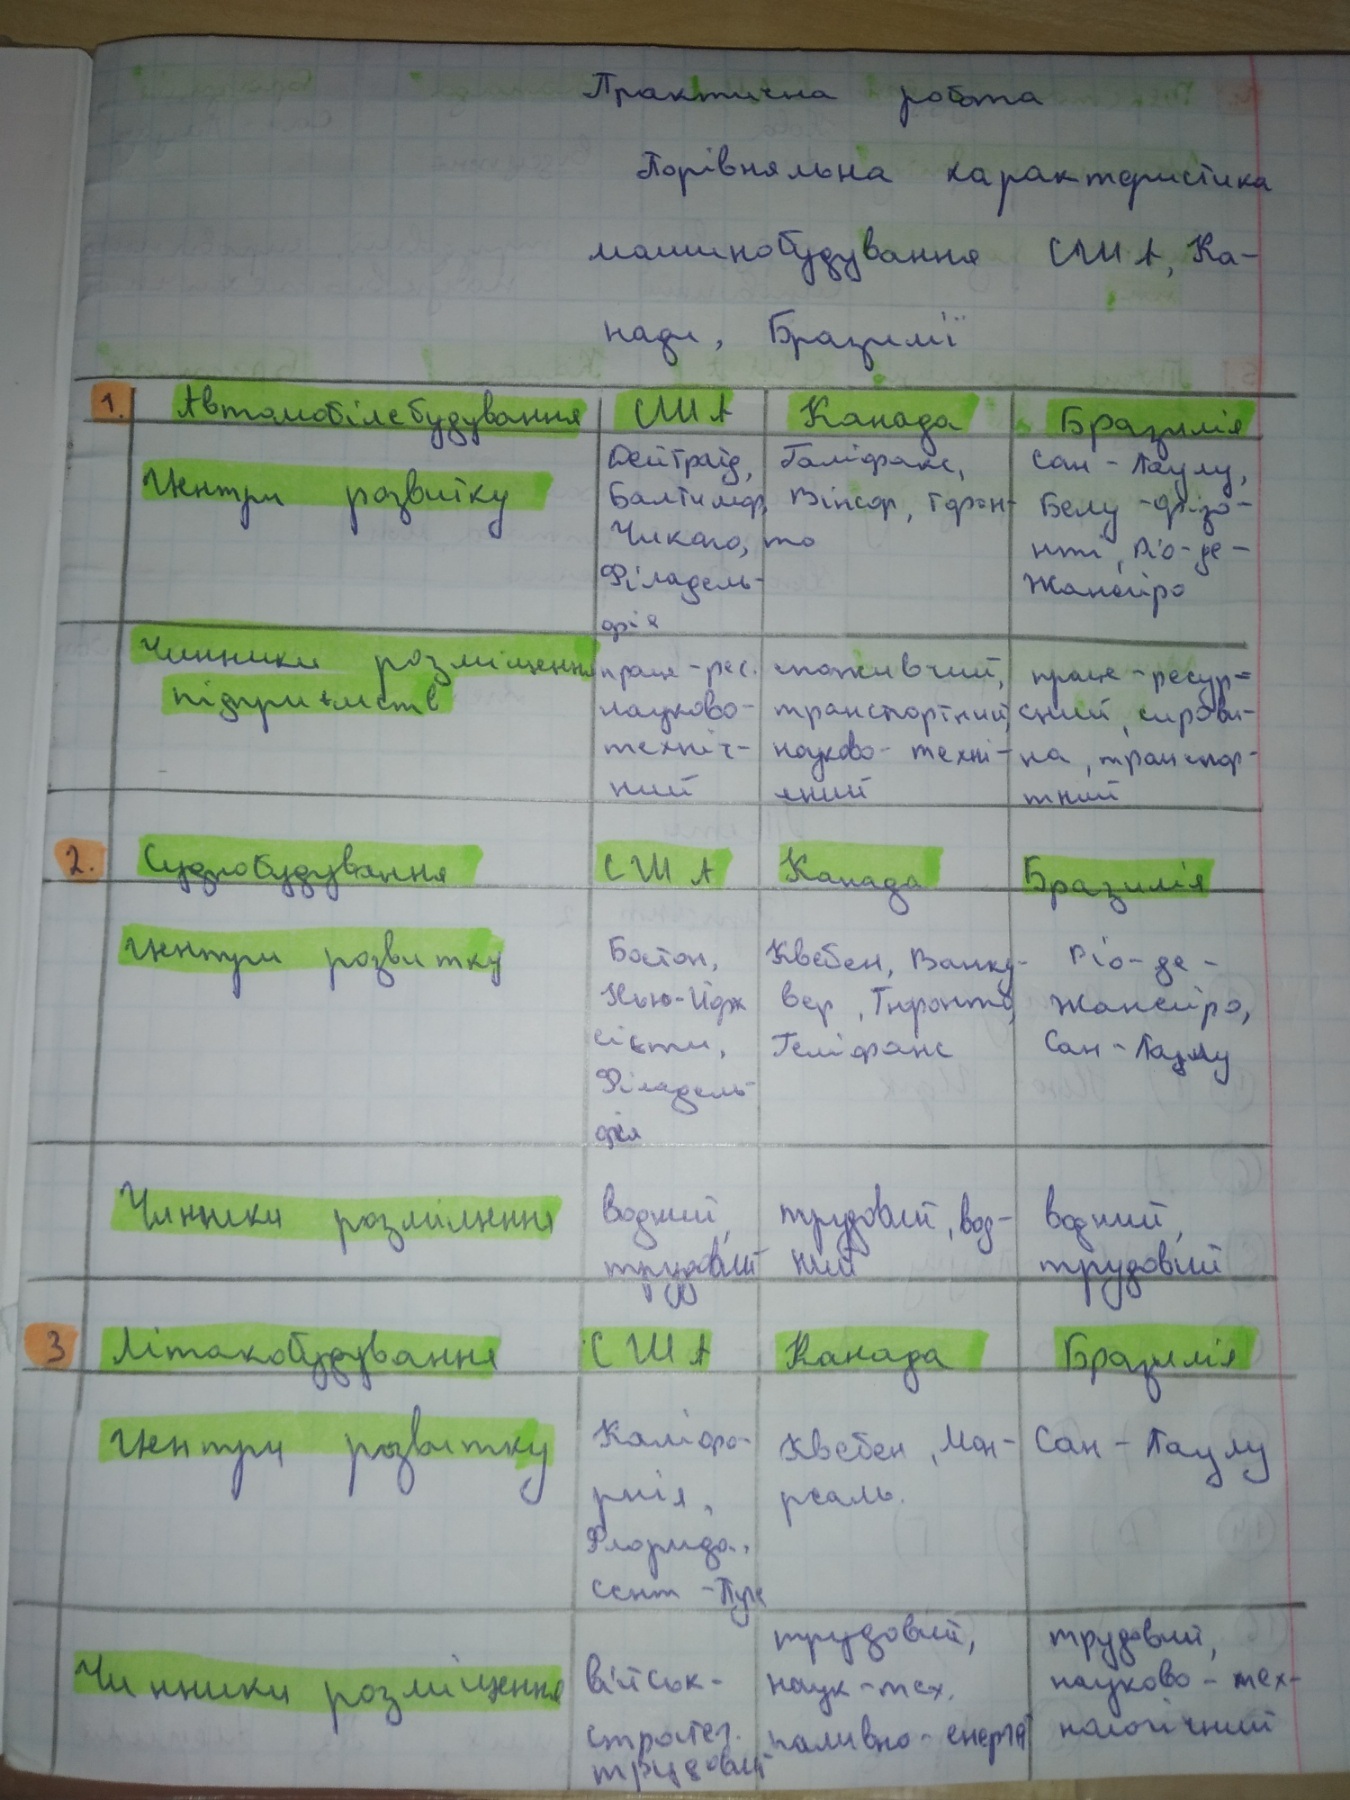 Практична робота
Порівняльна характеристика
машинобудування США, Ка-
нади, Бразилії
1. Автомобілебудування США Канада Бразилія
Центри розвитку
Дейтраїд,
Балтимор,
Чикаго,
Філадель-
фія
Галіфакс,
Вінсор, Торон-
то
Сан-Паулу,
Белу-Фрізо-
нті, Ріо-де-
Жанейро
Чинники розміщення
підприємств
праце-рес.
науково-
техніч-
ний
споживчий,
транспортний,
науково-техні-
чний
праце-ресур=
сний, сирови-
на, транспор-
тний
2. Суднобудування США Канада Бразилія
Центри розвитку
Бостон,
Нью-Йорк
Філадель-
фія
Квебек, Ванку-
вер, Торонто,
Галіфакс
Ріо-де-
Жанейро,
Сан-Паулу
Чинники розміщення
водний,
трудовий
трудовий, вод-
ний
водний,
трудовий
3 Літакобудування США Канада Бразилія
Центри розвитку
Каліфо-
рнія,
Флорида,
Сент-Луїс
Квебек, Мон-
реаль.
Сан-Паулу
Чинники розміщення
військ-
стратег.
трудовий
трудовий,
наук-тех.
паливно-енергет
трудовий,
науково-тех-
нологічний